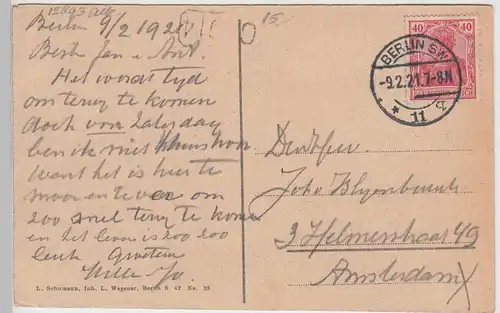 12693 alg
Berlin 9/2 1921
15
Beste Jan + Ant.
Het wordt tijd
om terug te komen
doch voor Zaterdag
ben ik niet thuis hoor
Want het is hier te
mooi en te ver om
zoo snel terug te komen
en het leven is zoo zoo
leuk Groeten
40 40
BERLIN SW
-9.2.21.7-8N
* 11 *
Joh. Blijenburgh
3 Helmersstraat 49
Amsterdam
L. Schumann, Inh. L. Wegener, Berlin S. 42 No. 28